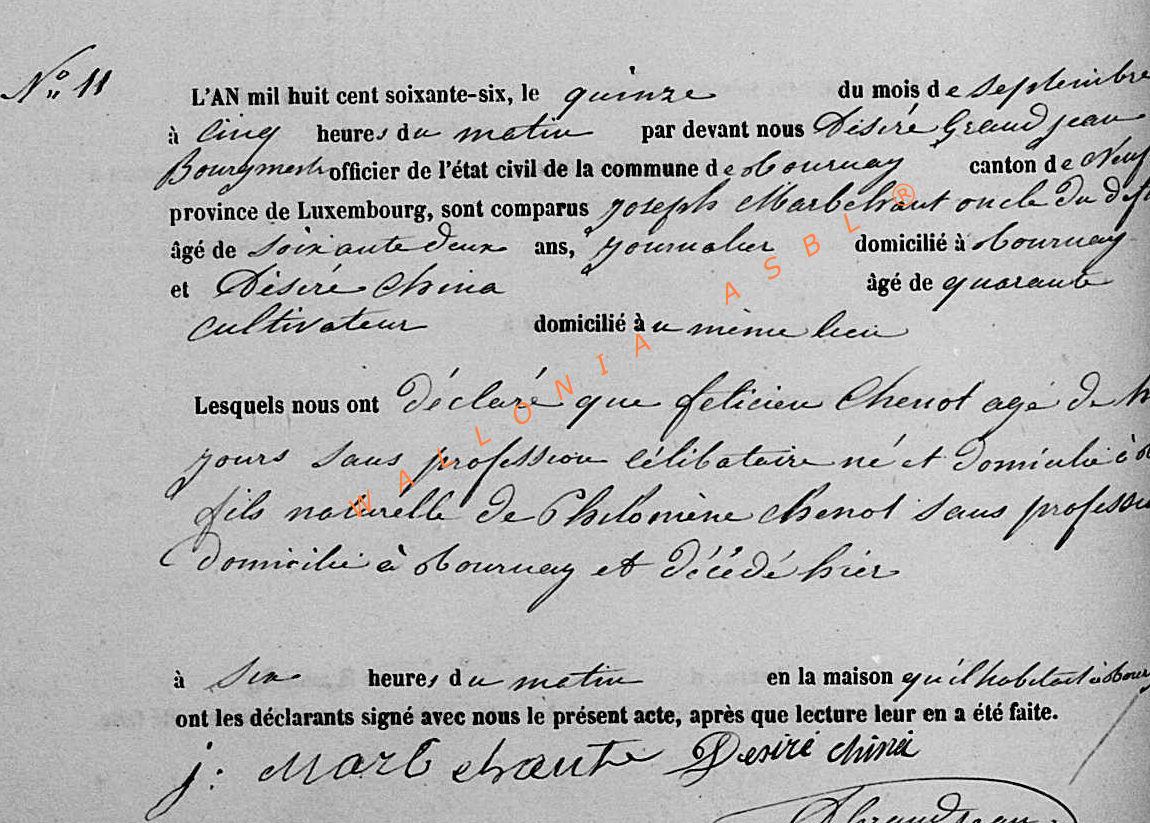 N° 11
L'AN mil huit cent soixante-six, le quinze du mois de Septembre
à Cinq heures du matin par devant nous Désiré Grandjean
Bourgmestre officier de l'état civil de la commune de Tournay canton de Neuf
province de Luxembourg, sont comparus Joseph Marbehant oncle du déf
âgé de soixante deux ans, journalier domicilié à Tournay
et Désiré China âgé de quarante
cultivateur domicilié au même lieu
Lesquels nous ont déclaré que felicien Chenot agé de h
jours sans profession célibataire né et domicilié à
fils naturelle de Philomène Chenot sans professi
domicilié à Tournay et décédé hier
à six heures du matin en la maison qu'il habitait à Tour
ont les déclarants signé avec nous le présent acte, après que lecture leur en a été faite.
j: Marbehant Desiré China
Grandjean
WALLONIA ASBL ®